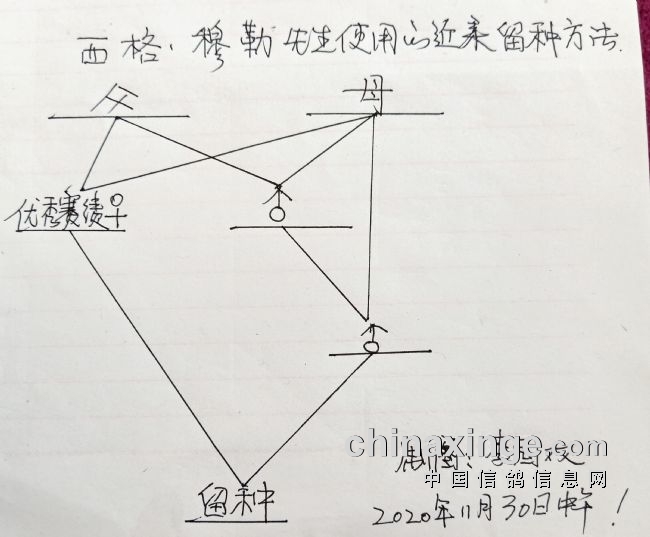 西格、穆勒先生使用的近亲留种方法.
父 母
优秀赛绩♀
♂
♂
留种
chinaxinge.com
中国信鸽信息网
2020年11月30日中午!